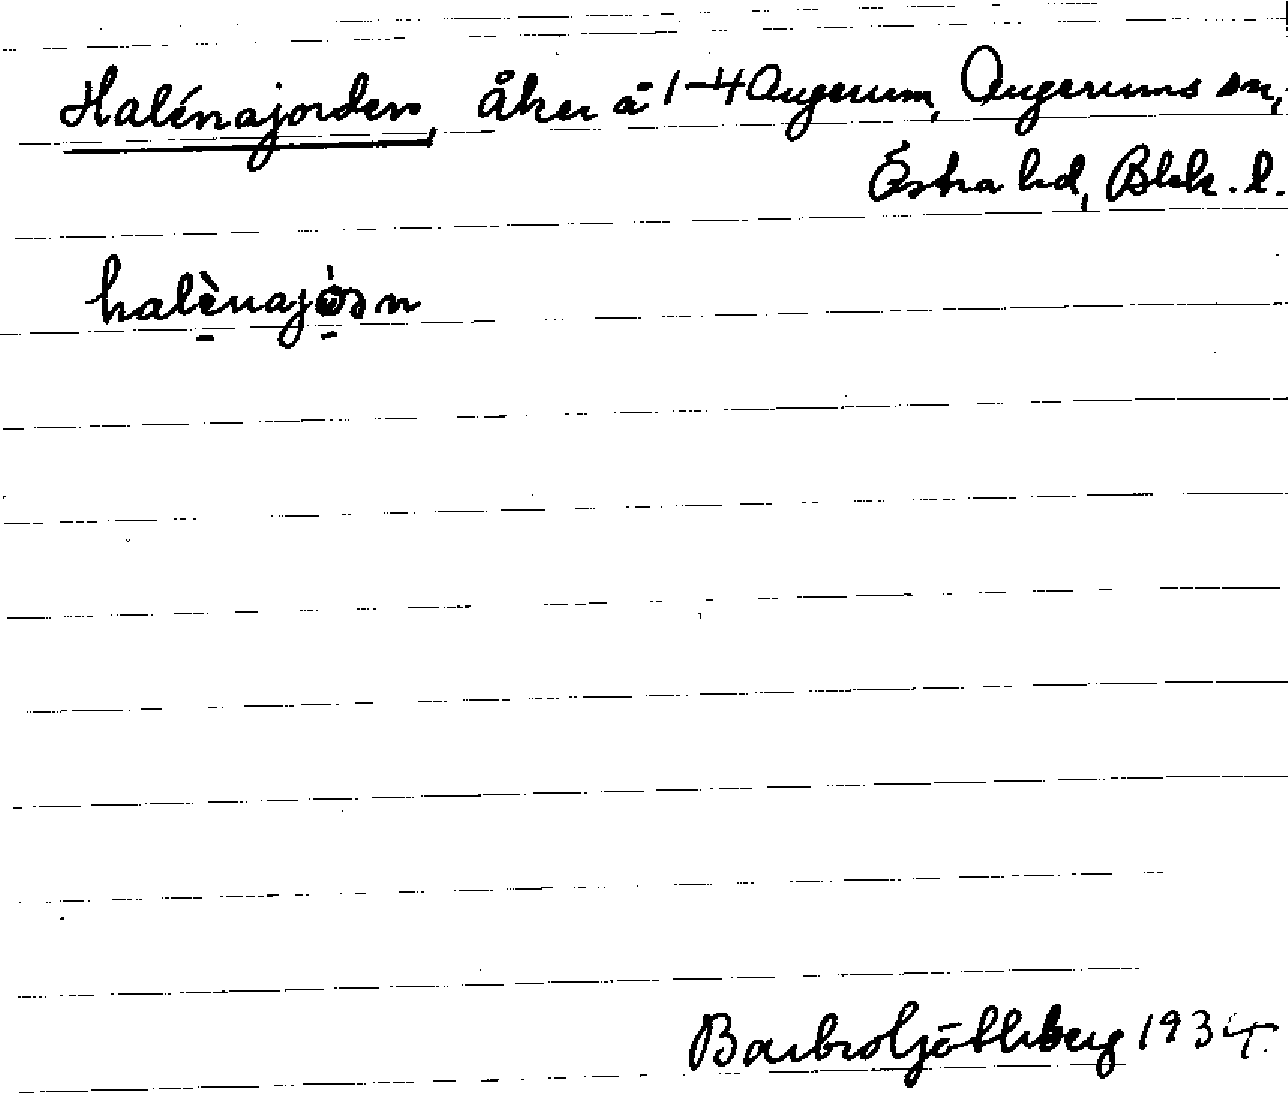 Halénajorden, åker å 1-4 Augerum, Augerums sn,
Östra hd, Blek. l.
halènajo̱rn
Barbro Götlsberg 1934.